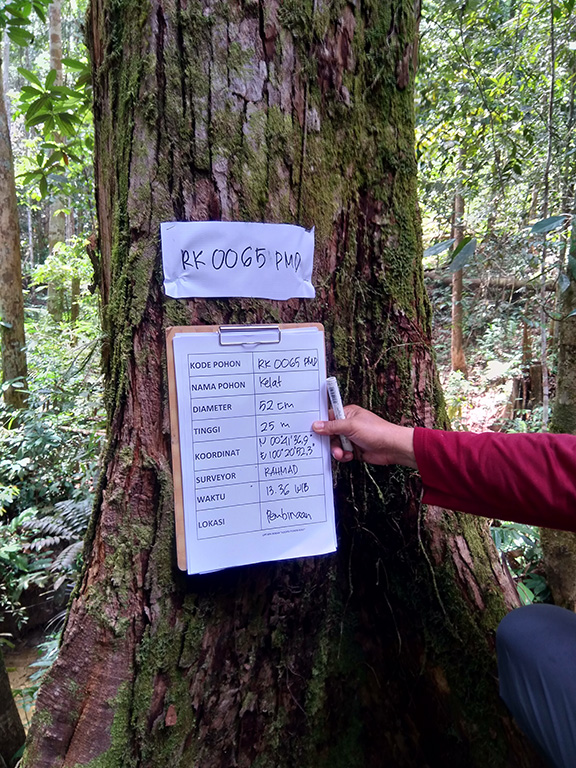 RK 0065 PMD
KODE POHON RK 0065 PMD
NAMA POHON Kelat
DIAMETER 52 cm
TINGGI 25 m
KOORDINAT N 00°41'36,9" E 100°20'52,3"
SURVEYOR RAHMAD
WAKTU 13.36 WIB
LOKASI Pembinaan